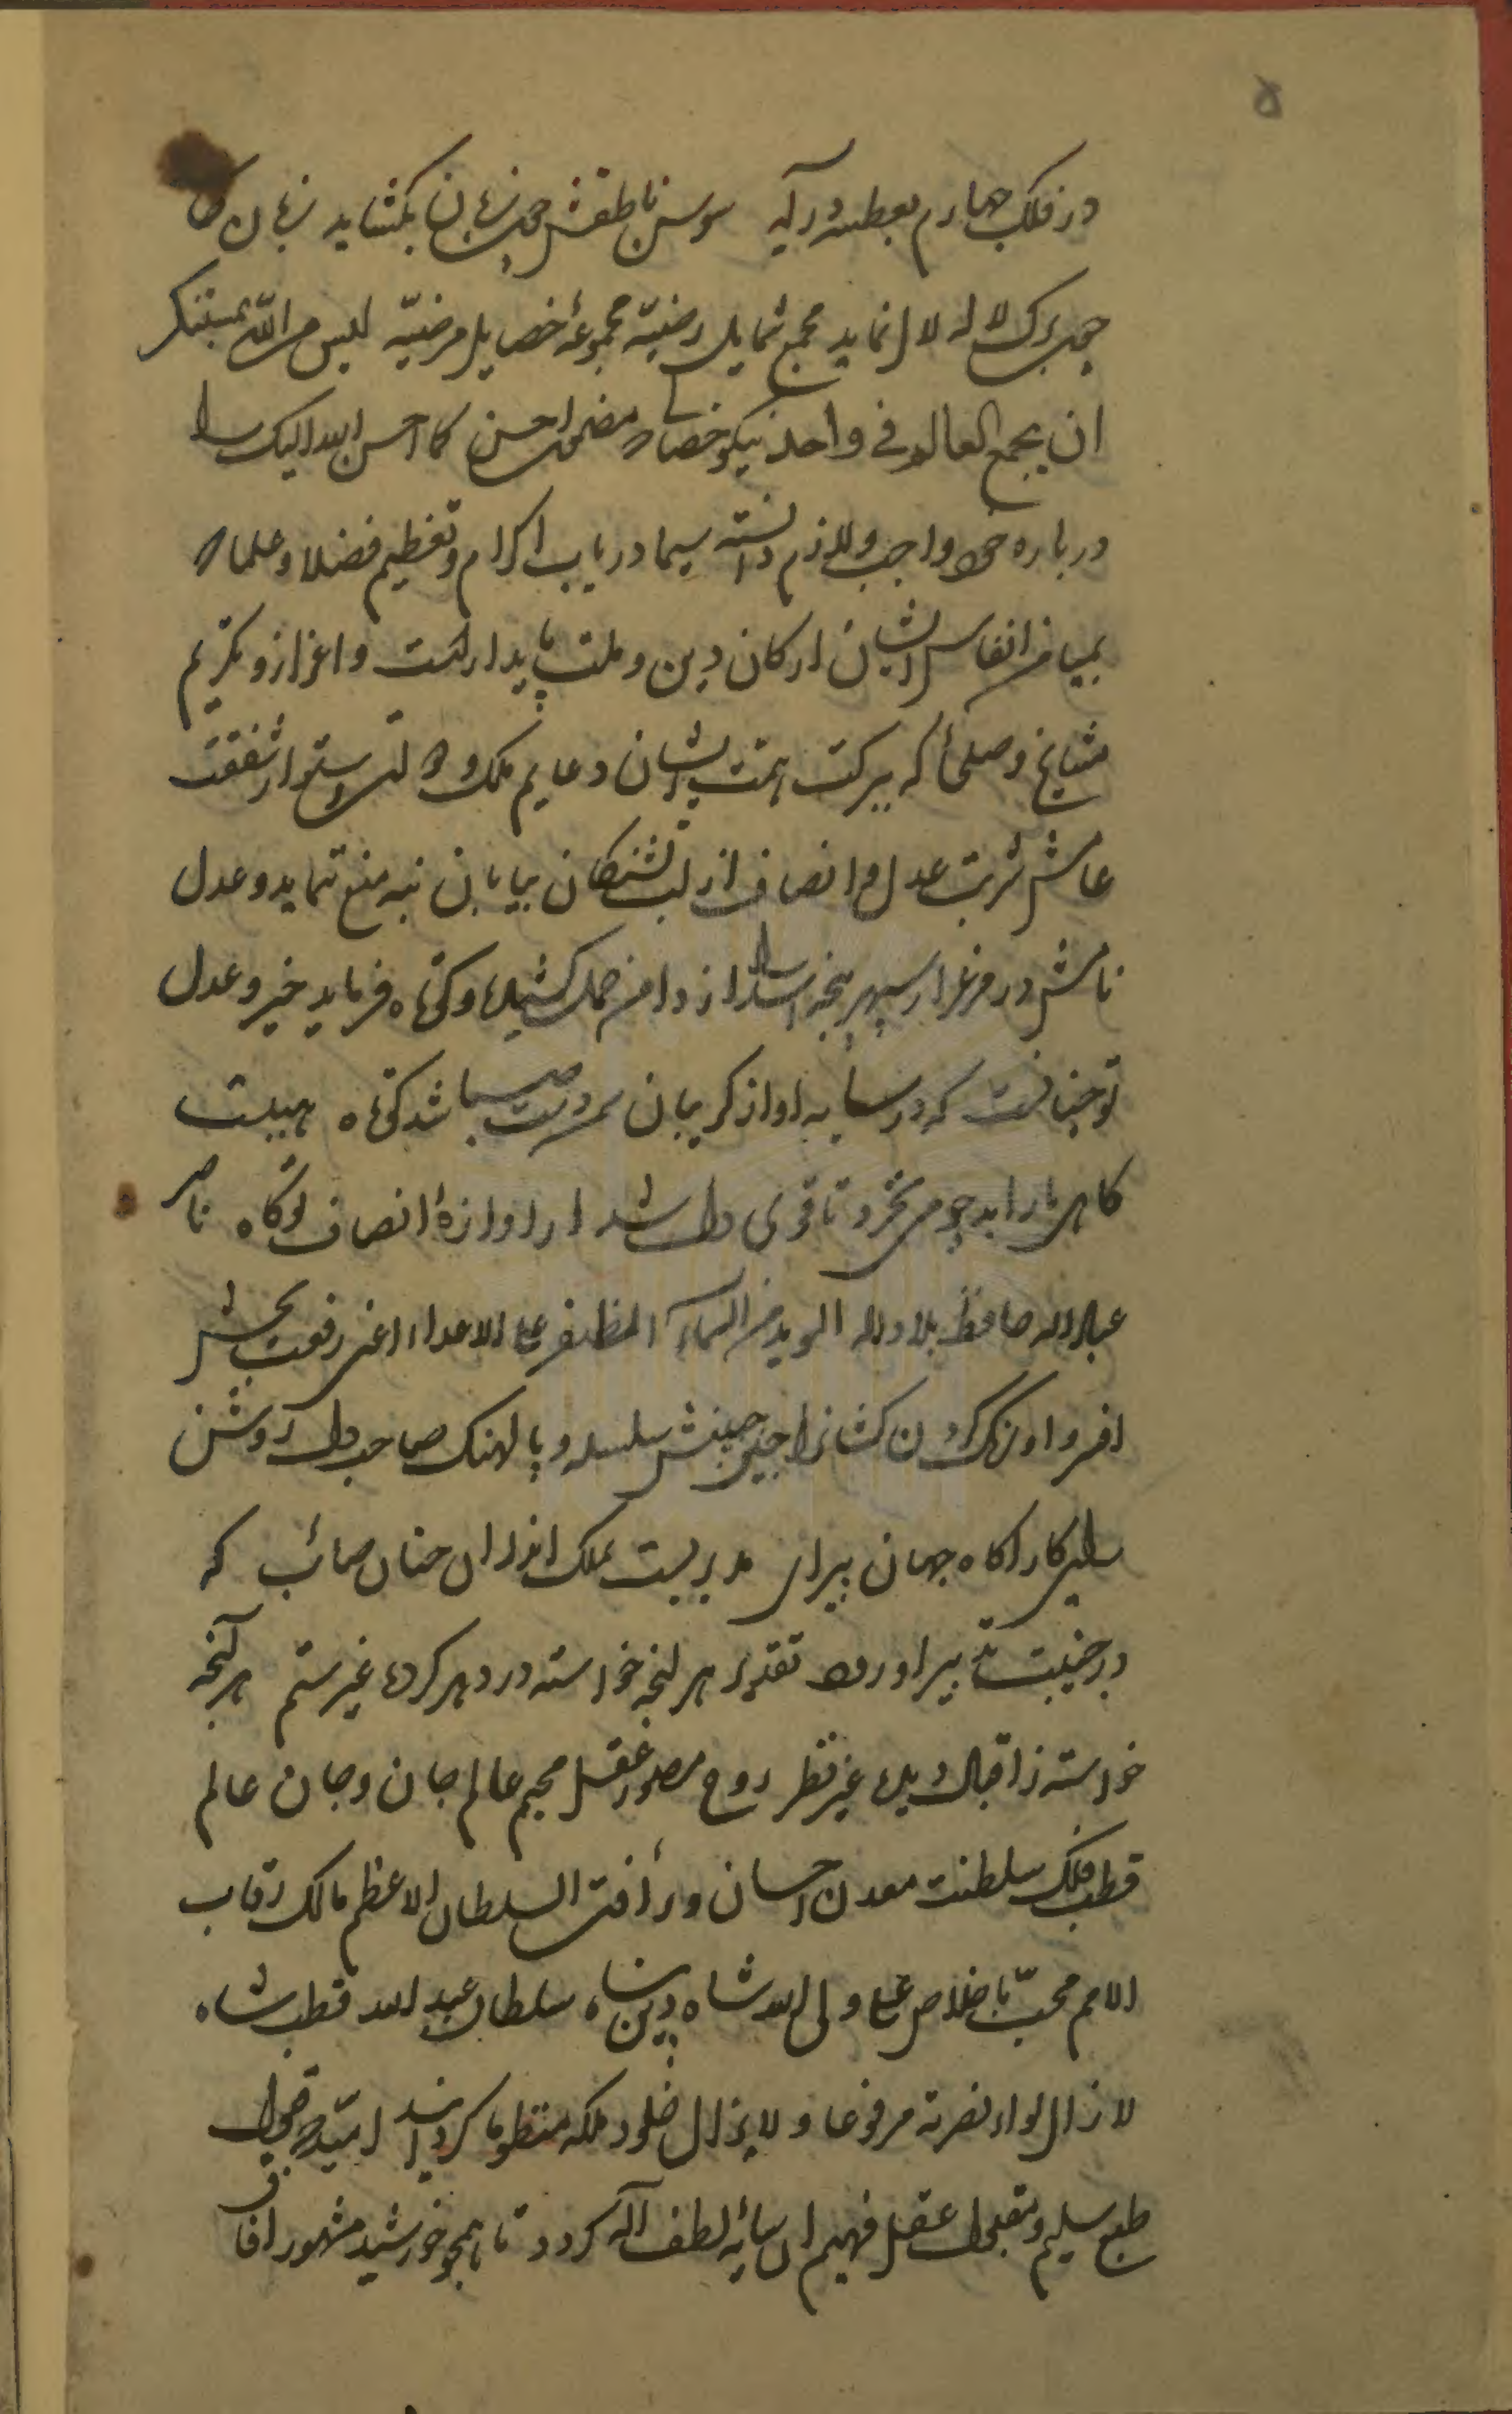 ۵
در فلک چهارم بعطسه درآید سوسن ناطقش چون زبان بکشاید زبان
چون برک لاله لال نماید مجمع شمایل رضیّه مجموعهٔ خصایل مرضیّه لیس من اللّه بمستنکر
ان یجمع العالم فی واحد نیکو خصالی مضمون احسن کما احسن الله الیک را
درباره خود واجب و لازم دانسته سیما در باب اکرام و تعظیم فضلا و علما که
بمیامن انفاس ایشان ارکان دین و ملت پایدارست و اعزاز و تکریم
مشایخ و صلحا که ببرکت همت ایشان دعایم ملک و دولت استوار شفقت
عامش شربت عدل و انصاف از لب تشنکان بیابان نبه منع ننماید و عدل
تامش در مرغزار سپهر پنجه اسد را از دامن حمل کشیده و کوتاه فرماید خیر و عدل
تو چنانست که در سایه او از کریبان سمن دست صبا شد کوتاه هیبت
کاهربا را بدو جو می نخرد تا قوی دل شد از اوازهٔ انصاف تو کاه ناصر
عباد الله حافظ بلاد الله الموید من السماء المظفر علی الاعداء اعنی رفعت بخش
افسر و اورنک کردن کشانرا چین جبینش سلسله و پالهنک صاحب دل روشن
رای کار اکاه جهان پیرای مدبریست بملک اندر ان چنان صائب که
در جنیبت تدبیر او رود تقدیر هر انچه خواسته در دهر کرده غیر ستم هر آنچه
خواسته ز اقبال دیده غیر نظیر روح مصور عقل مجسم عالم جان و جان عالم
قطب فلک سلطنت معدن احسان و رأفت السلطان الاعظم مالک رقاب
الامم محبّ باخلاص علی ولی الله شاه دین پناه سلطان عبد الله قطب شاه
لا زال لواء نصرته مرفوعا و لا یزال خلود ملکه منظوما کردانید امید که قبول
طبع سلیم و مقبول عقل فهیم ان سایه لطف اله کردد تا همچو خورشید مشهور افاق